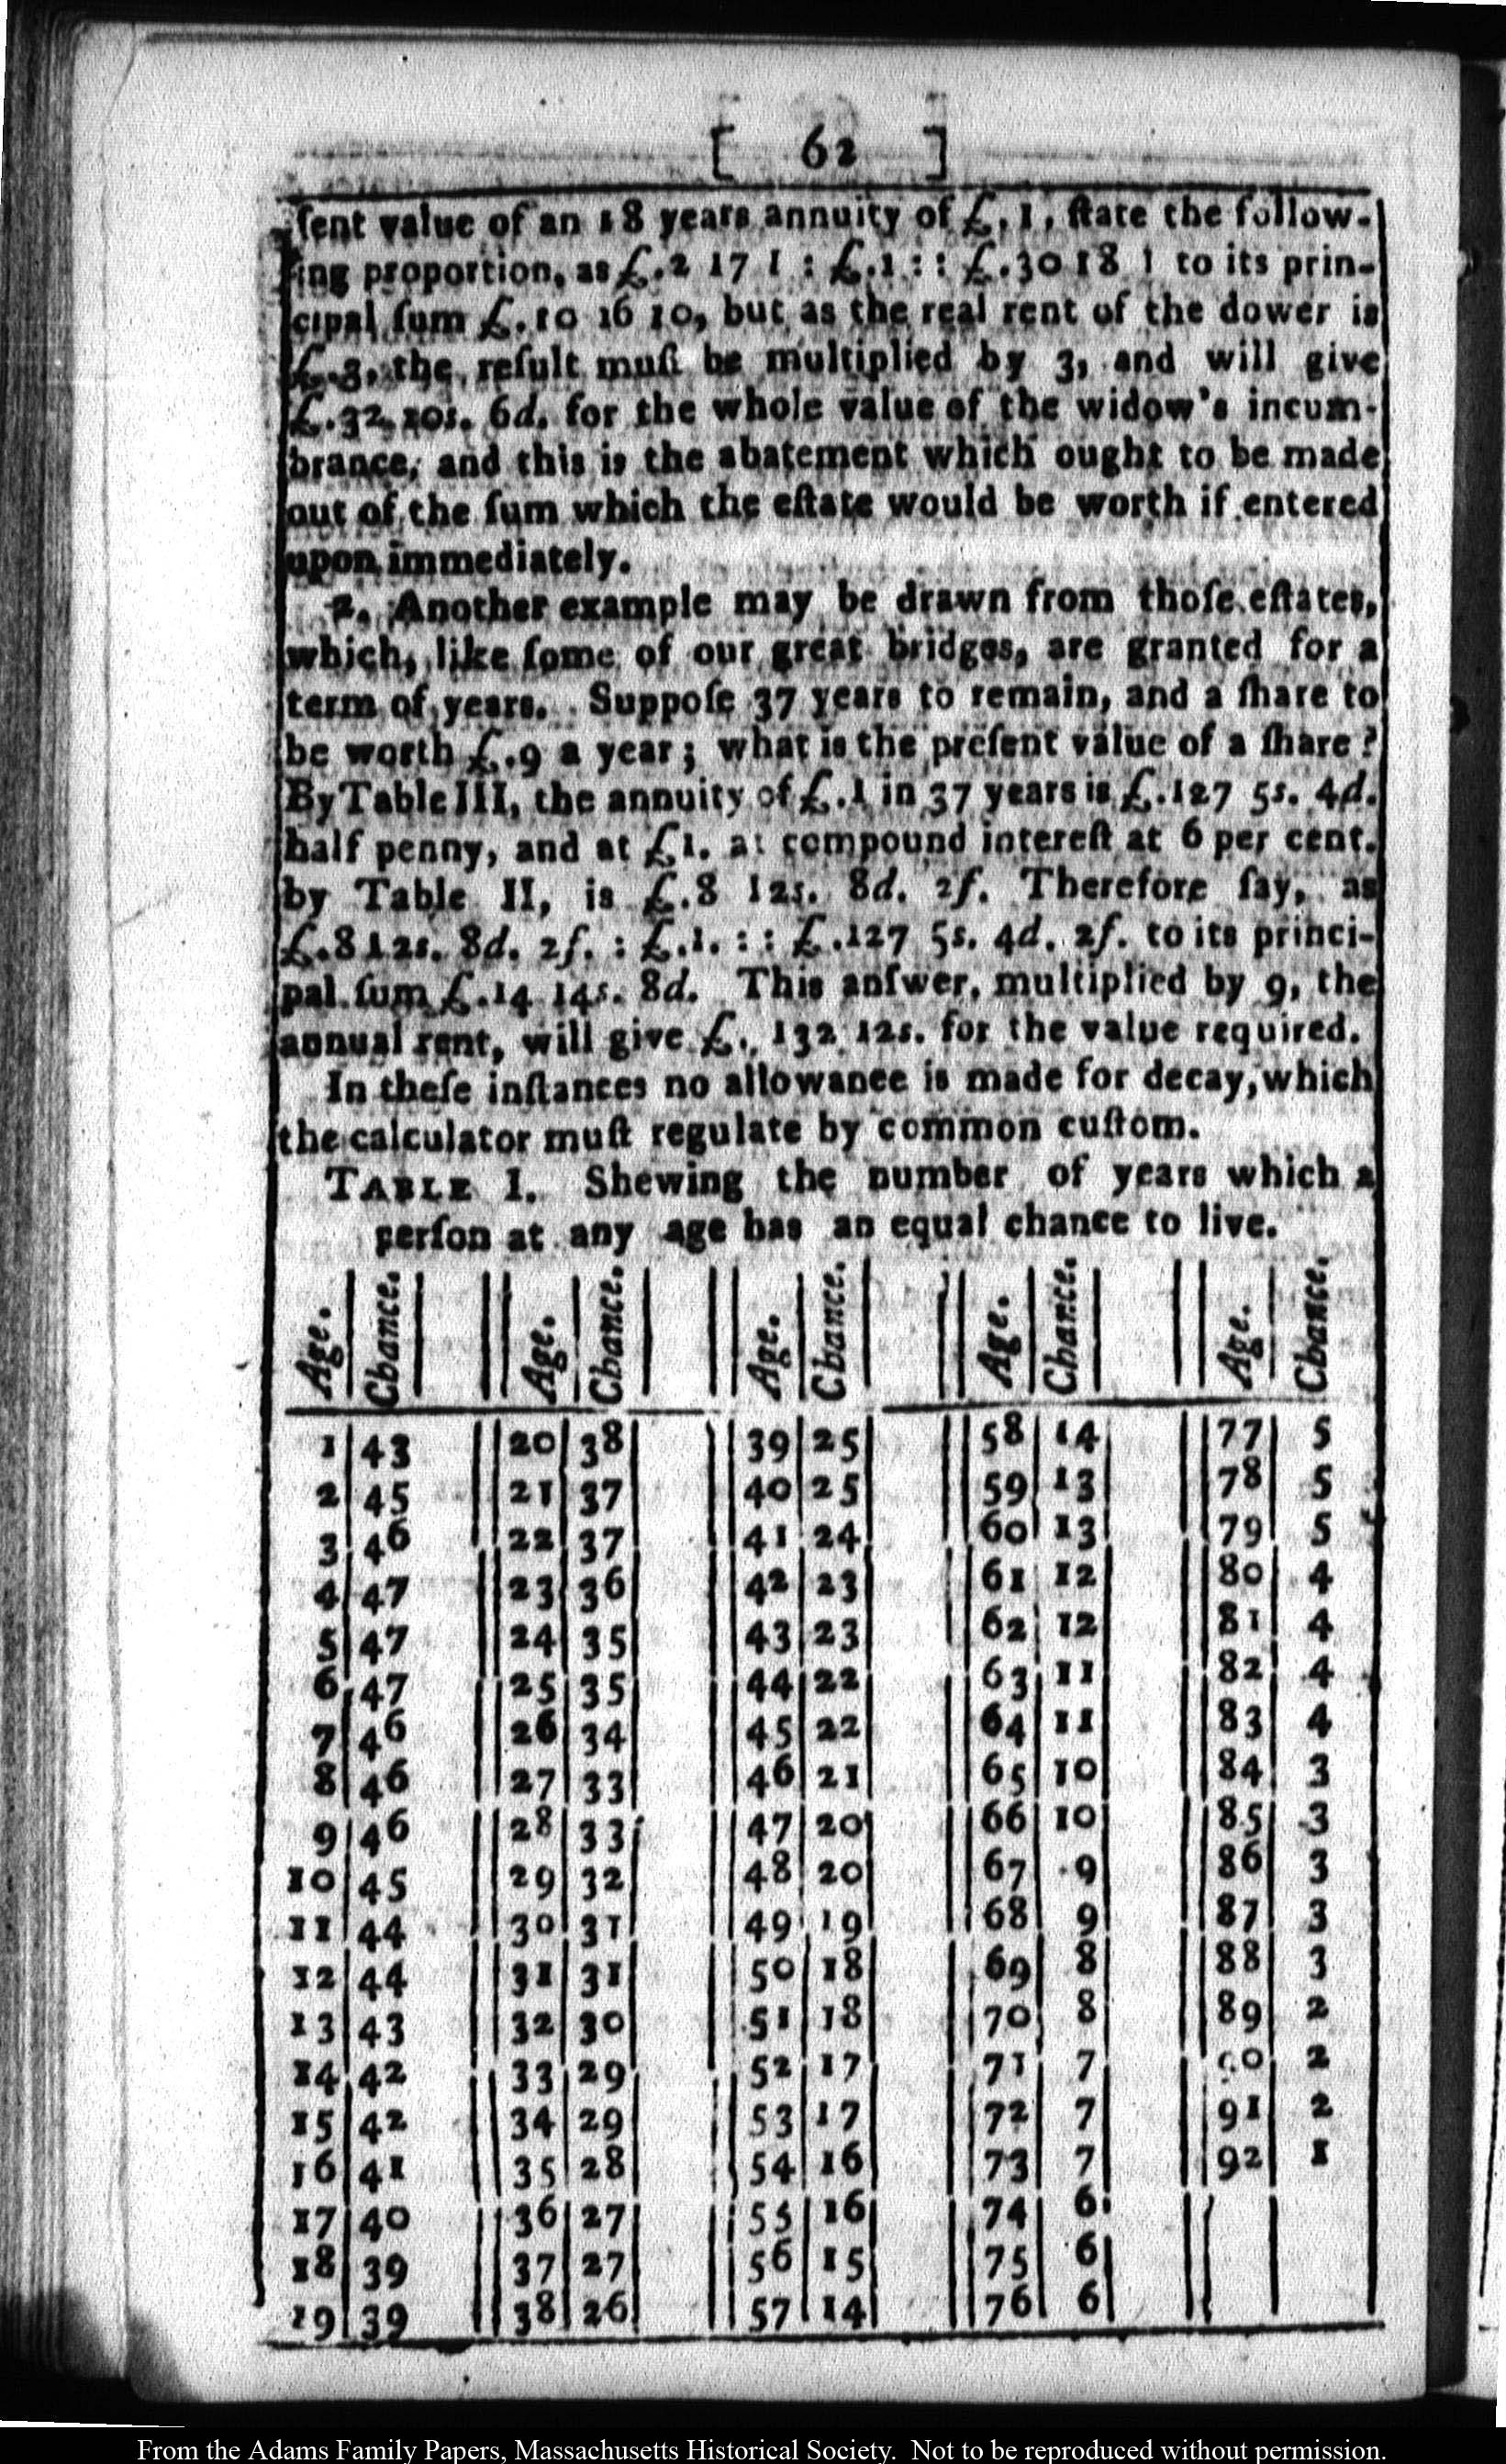 [ 62 ]
ſent value of an 18 years annuity of £.1, ſtate the follow-
ing proportion, as £.2 17 1 : £.1 : : £.30 18 1 to its prin-
cipal ſum £.10 16 10, but as the real rent of the dower is
£.3, the reſult muſt be multiplied by 3, and will give
£.32 10s. 6d. for the whole value of the widow's incum-
brance; and this is the abatement which ought to be made
out of the ſum which the eſtate would be worth if entered
upon immediately.
2. Another example may be drawn from thoſe eſtates,
which, like ſome of our great bridges, are granted for a
term of years. Suppoſe 37 years to remain, and a ſhare to
be worth £.9 a year; what is the preſent value of a ſhare?
By Table III, the annuity of £.1 in 37 years is £.127 5s. 4d.
half penny, and at £1. at compound intereſt at 6 per cent.
by Table II, is £.8 12s. 8d. 2f. Therefore ſay, as
£.8 12s. 8d. 2f. : £.1. : : £.127 5s. 4d. 2f. to its princi-
pal ſum £.14 14s. 8d. This anſwer, multiplied by 9, the
annual rent, will give £. 132 12s. for the value required.
In theſe inſtances no allowance is made for decay, which
the calculator muſt regulate by common cuſtom.
TABLE I. Shewing the number of years which a
perſon at any age has an equal chance to live.
Age. Chance. Age. Chance. Age. Chance. Age. Chance. Age. Chance.
1 43 20 38 39 25 58 14 77 5
2 45 21 37 40 25 59 13 78 5
3 46 22 37 41 24 60 13 79 5
4 47 23 36 42 23 61 12 80 4
5 47 24 35 43 23 62 12 81 4
6 47 25 35 44 22 63 11 82 4
7 46 26 34 45 22 64 11 83 4
8 46 27 33 46 21 65 10 84 3
9 46 28 33 47 20 66 10 85 3
10 45 29 32 48 20 67 9 86 3
11 44 30 31 49 19 68 9 87 3
12 44 31 31 50 18 69 8 88 3
13 43 32 30 51 18 70 8 89 2
14 42 33 29 52 17 71 7 90 2
15 42 34 29 53 17 72 7 91 2
16 41 35 28 54 16 73 7 92 1
17 40 36 27 55 16 74 6
18 39 37 27 56 15 75 6
19 39 38 26 57 14 76 6
From the Adams Family Papers, Massachusetts Historical Society. Not to be reproduced without permission.